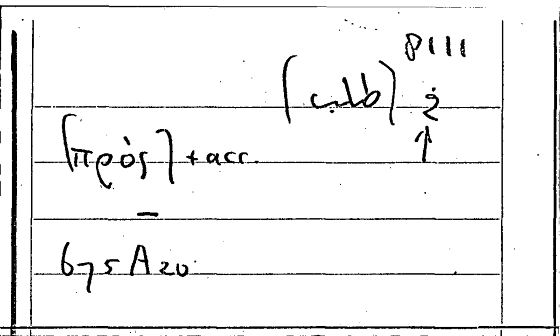 8111
(طلب) في
↑
[πρός] + acc.
–
675 A 20